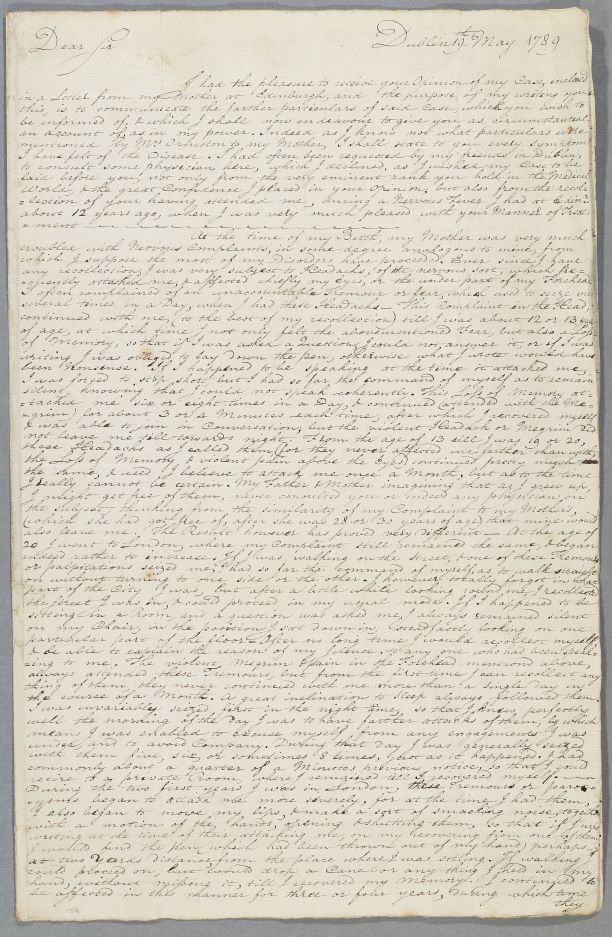 Dear Sir Dublin 19th May 1789
I had the pleasure to receive your Opinion of my Case, inclosed
in a Letter from my Mother at Edinburgh, and the purpose of my writing you
this, is to communicate the farther particulars of said Case which you wish to
be informed of, & which I shall now endeavour to give you as circumstantial
an account of as in my power. Indeed as I know not what particulars were
mentioned by Mrs Ormston to my Mother, I shall state to you every symptom
I have felt of the Disease. I had often been requested by my friends in Dublin,
to consult some physician here, which I declined, as I wished my Case to be
laid before you, not only from the very eminent rank you hold in the Medical
World, & the great Confidence I placed in your Opinion, but also from the recol=
=lection of your having attended me, during a Nervous Fever I had at Edinr.
about 12 years ago, when I was very much pleased with your Manner of Treat=
=ment
At the time of my Birth, my Mother was very much
troubled with Nervous Complaints, in some degree analogous to mine, from
which I suppose the most of my Disorders have proceeded. Ever since I have
any recollection, I was very subject to Headachs, of the nervous sort, which fre=
=quently attacked me, & affected chiefly my Eyes, or the under part of my Forehead.
I often complained of an unaccountable Tremour or fear, which used to seize me
several times in a Day, when I had these Headachs — This Complaint in the Head
continued with me, to the best of my recollection, till I was about 12 or 13 years
of age, at which time I not only felt the abovementioned Fear, but also a Loss
of Memory, so that if I was asked a Question, I could not answer it, or if I was
writing I was obliged to lay down the pen, otherwise what I wrote would have
been Nonsense. If I happened to be speaking at the time it attacked me,
I was forced to stop short but I had so far the command of myself as to remain
silent, knowing that I could not speak coherently. This Loss of Memory at=
=tacked me six or eight times in a Day, & continued (attended with the Me=
=grim) for about 3 or 4 Minutes each time, after which I recovered myself
& was able to join in Conversation, but the violent Headach or Megrim did
not leave me till towards night. From the age of 13 till I was 19 or 20,
these Headachs as I called them (for they never affected me farther than with
the Loss of Memory & violent pain above the Eyes) continued pretty much
the same, & used I believe to attack me once a Month, but as to the time
I really cannot be certain. My Father & Mother imagining that as I grew up
I might get free of them, never consulted you or indeed any physician, on
the Subject, thinking from the similarity of my Complaint to my Mothers,
(which she had got free of, after she was 28 or 30 years of age) that mine would
also leave me. The Result however has proved very different — At the age of
20 I went to London, where my Complaint still remained the same, & began
indeed rather to increase. If I was walking on the street, & one of these Tremours
or palpitations seized me, I had so far the command of myself, as to walk straight
on without turning to one side or the other. I however totally forgot in what
part of the City I was, but after a little while looking round me, I recollected
the street I was in, & could proceed in my usual mode. If I happened to be
sitting in a room, and a question was asked me, I always remained silent
on my Chair, in the position I sat down in, steadfastly looking on one
particular part of the floor. After no long time I would recollect myself
& be able to explain the reason of my silence to any one who had been speak=
=ing to me. The violent Megrim & pain in the Forehead mentioned above,
always attended these Tremours, but from the first time I can recollect any
thing of them, they never continued with me more than a single day in
the course of a Month. A great inclination to Sleep always followed them.
I was invariably seized first in the night time, so that I knew perfectly
well the morning of the Day I was to have farther attacks of them, by which
means I was enabled to excuse myself from any engagements I was
under, and to avoid Company. During that day I was generally seized
with them five, six, or sometimes 8 times, but as it happened I had
commonly about a quarter of a Minutes previous notice, so that I could
retire to a private Room, where I remained till I recovered myself.
During the two first years I was in London, these Tremours or parox=
=ysms began to attack me more severely, for at the time I had them,
I also began to move my lips, & make a sort of smacking noise, together
with a motion of the hands, opening & shutting them, so that if I was
writing at the time of their attacking me, on my recovering from one of them
I would find the pen (which had been thrown out of my hand) perhaps
at two Yards distance from the place where I was sitting. If walking I
could proceed on, but would drop a Cane or any thing I had in my
hand, without missing it, till I recovered my Memory. I continued to
be affected in this manner for three or four years, during which time
they